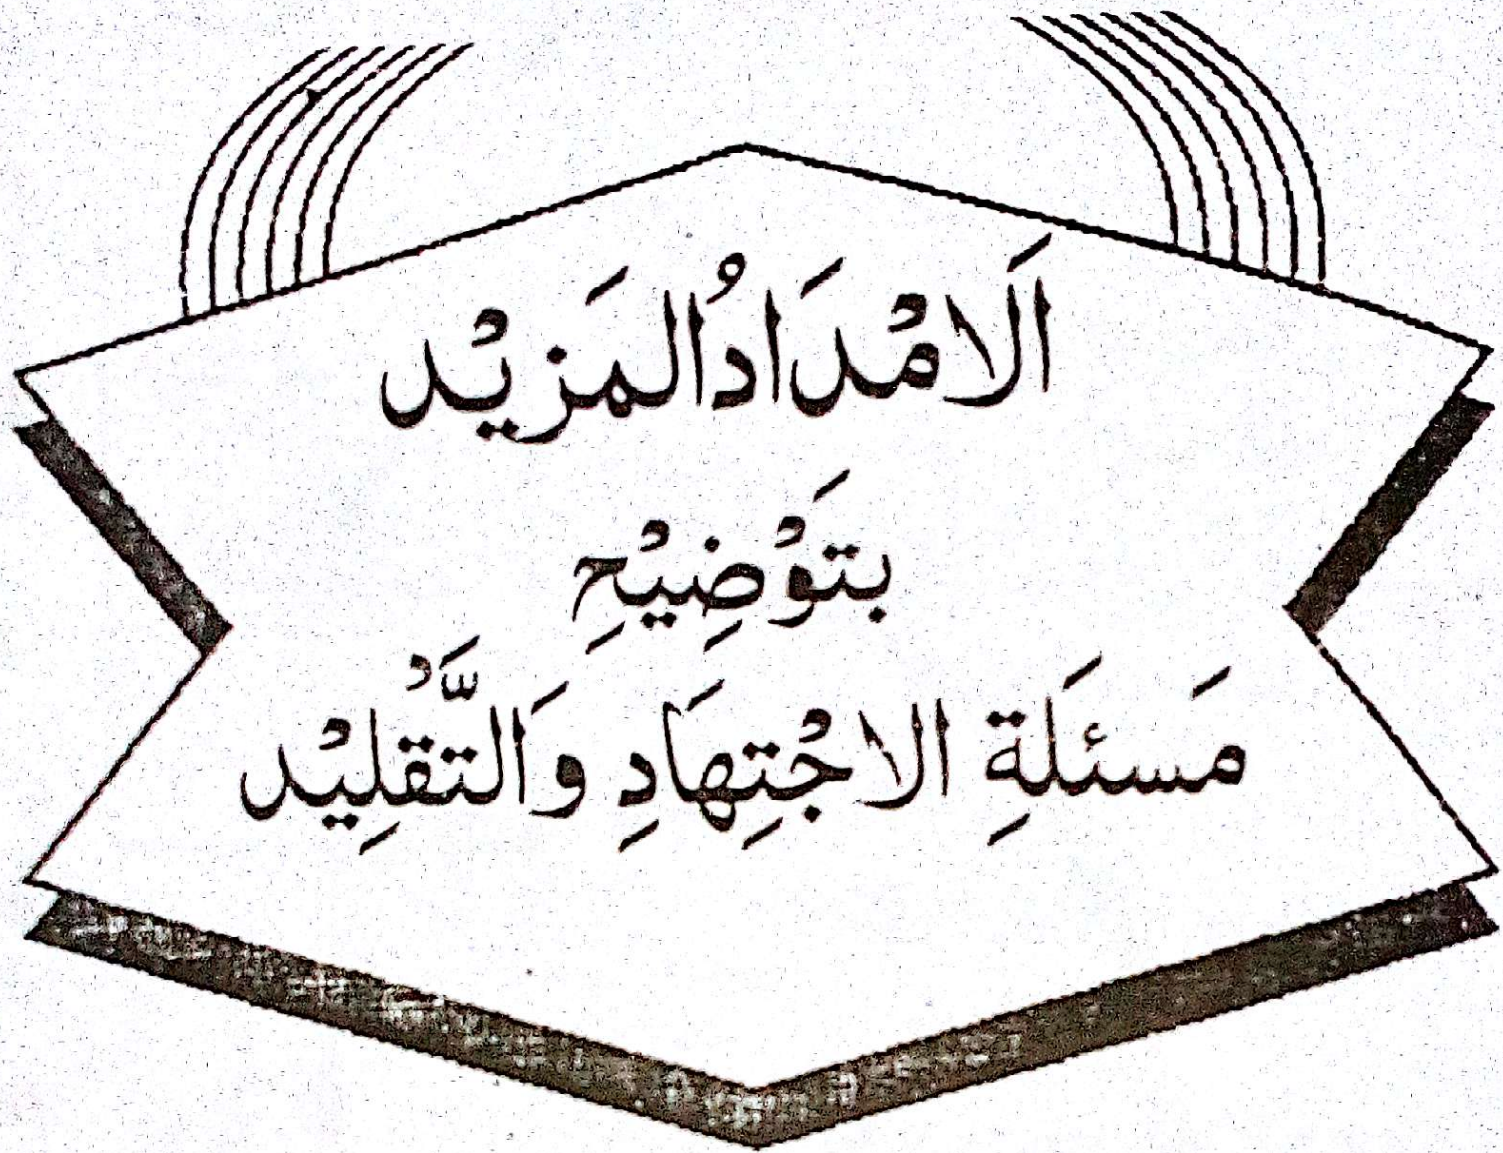 اَلامْدَادُالمَزِيْد
بتَوْضِيْحِ
مَسئلَةِ الاجْتِهَادِ وَالتَّقْلِيْد